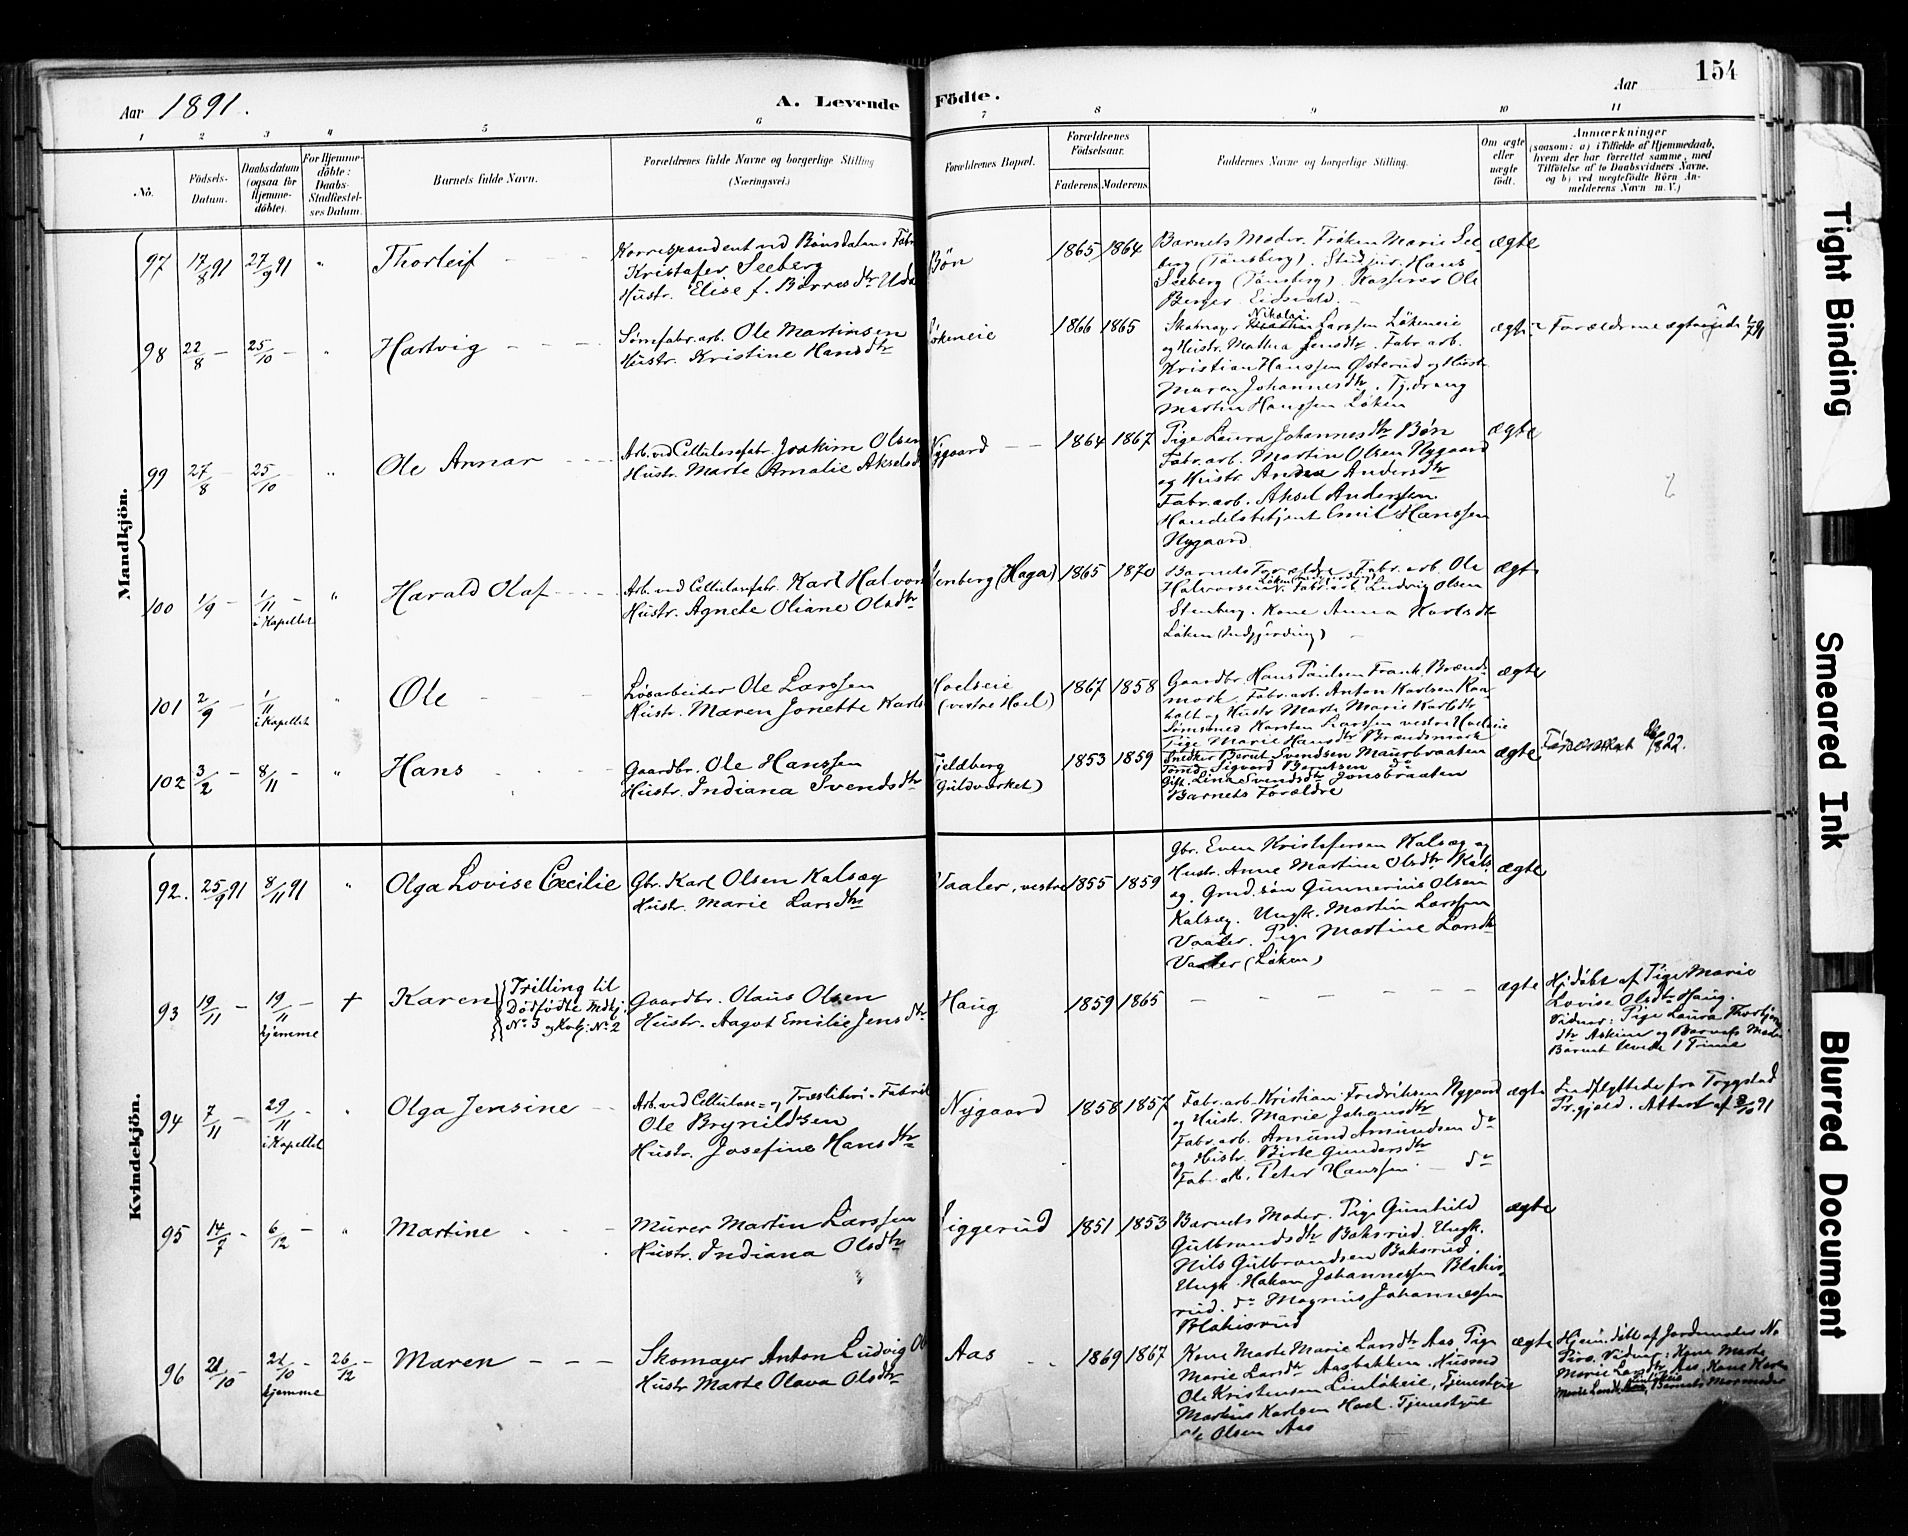 154
Aar 1891.
A. Levende Födte.
Aar
1 2 3 4 5 6 7 8 9 10 11
No.
Födsels-Datum.
Daabsdatum (ogsaa för Hjemme-döbte).
For Hjemme-döbte: Daabs-Stadfæstel-ses Datum.
Barnets fulde Navn.
Forældrenes fulde Navne og borgerlige Stilling (Næringsvei.)
Forældrenes Bopæl.
Forældrenes Födselsaar.
Faderens. Moderens.
Faddernes Navne og borgerlige Stilling.
Om ægte eller uægte født.
Anmærkninger
(saasom: a) i Tilfælde af Hjemmedaab,
hvem der har forrettet samme, med
Tilföielse af to Daabsvidners Navne.
og b) ved uægtefödte Börn An-
melderens Navn m. V.)
Mandkjön.
97 17/8 91 27/9 91 " Thorleif
Korrespondent ved Bönsdalens Fabr
Kristofer Seeberg
Hustr. Elise f.
Bön 1865 1864
Barnets Moder. Fröken Marie See-
berg (Tönsberg). Stud. jur. Hans
Seeberg (Tönsberg). Kasserer Ole
Berger Eidsvold.
ægte
98 22/8 - 25/10 - " Hartvig
Sömfabr. arb. Ole Martinsen
Hustr. Kristine Hansdtr
Lökeneie 1866 1865
Skomager Nikolai Larssen Lökeneie
og Hustr. Mathea Jensdtr. Fabr. arb.
Kristian Hanssen Østerud og Hustr
Maren Johannesdtr. Tj.dreng
Martin Hanssen Löken
ægte
99 27/8 - 25/10 - " Ole Annar
Arb. ved Cellulosefabr. Joakim Olsen
Hustr. Marte Amalie Akselsd
Nygaard 1864 1867
Pige Laura Johannesdtr Bön
Fabr. arb. Martin Olsen Nygaard
og Hustr. Andersdtr
Fabr. arb. Aksel Anderssen.
Handelsbetjent Emil Hanssen
Nygaard
ægte
100 1/9 - 1/11 - i Kapellet " Harald Olaf
Arb. ved Cellulosefabr. Karl Halvor
Hustr. Agnete Oliane Olsdtr
(Haga) 1865 1870
Barnets Forældre. Fabr. arb. Ole
Halvorsen Fabr. arb. Ludvig Olsen
Stenberg. Kone Anna Karlsdtr
Löken (Indgjerding)
ægte
101 2/9 - 1/11 i Kapellet " Ole
Lösarbeider Ole Larssen
Hustr. Maren Jonette Karls
Hoelseie (vestre Hoel) 1867 1858
Gaardbr. Hans Paulsen Frank, Brænds-
mork. Fabr. arb. Anton Karlsen Raa-
holt og Hustr Marte Marie Karlsdtr
Sömsmed Karsten Larssen vestre Hoelseie
Pige Marie Hansdtr Brændsmork
ægte
102 3/2 - 8/11 - " Hans
Gaardbr. Ole Hanssen
Hustr. Indiana Svendsdtr
Fjeldberg (Guldværket) 1853 1859
Snedker Bernt Svendsen Maurbraaten
Tömd. Sigvard Berntsen do
Gift. Lina Svendsdtr Jonsbraaten
Barnets Forældre
ægte
Kvindekjön.
92. 25/9 91 8/11 91 " Olga Lovise Cecilie
Gbr. Karl Olsen Kalsæg
Hustr. Marie Larsdtr
Vaaler, vestre 1855 1859
Gbr. Even Kristofersen Kalsæg og
Hustr. Anne Martina Olsdtr Kals-
æg. Grnd. sön Gunnerius Olsen
Kalsæg. Ungk. Martin Larssen
Vaaler. Pige Martine Larsdtr
Vaaler (Löken)
ægte
93 19/11 - 19/11 - hjemme † Karen
Trilling til
Dödfödte Mdkj.
No 3 og Kvkj. No 2
Gaardbr. Olaus Olsen
Hustr. Aagot Emilie Jensdtr
Haug 1859 1865
ægte
Hjdöbt af Pige Marie
Lovise Olsdtr Haug.
Vidner: Pige Laura Thorbjörns
dtr Askim og Barnets Moder
Barnet levede 1 Time
94 7/11 - 29/11 - i Kapellet " Olga Jensine
Arb. ved Cellulose- og Træsliberi-Fabrik
Ole Brynildsen
Hustr. Josefine Hansdtr
Nygaard 1858 1857
Fabr. arb. Kristian Fredriksen Nygaard
og Hustr. Marie Johansdtr
Fabr. arb. Amund Amundsen do
og Hustr. Birte Gundersdtr
Fabr. arb. Peter Hanssen - do
ægte
Indflyttede fra Trygstad
Pr.gjeld. Attest af
95 14/7 - 6/12 - " Martine
Murer Martin Larssen
Hustr. Indiana Olsdtr
1851 1853
Barnets Moder. Pige Gunhild
Gulbrandsdtr Baksrud. Ungk.
Nils Gulbrandsen Baksrud.
Ungk. Hakon Johannessen Blakis-
rud. do Magnus Johannessen
Blakisrud
ægte
96 21/10 - 21/10 - hjemme 26/12 - Maren
Skomager Anton Ludvig Ol
Hustr Marte Olava Olsdtr
Aas 1869 1867
Kone Marte Marie Larsdtr Aas Pige
Marie Larsdtr Aasbakken. Husmd
Ole Kristensen Linlökeie, Tjenestgut
Martius Karlsen Hoel. Tjenestgut
Olsen Aas
ægte
Hjemdöbt af Jordemoder
Vidner: Kone Marte
Marie Larsdtr Aas, Kone Karen
Barnets Mormoder
Tight Binding
Smeared Ink
Blurred Document